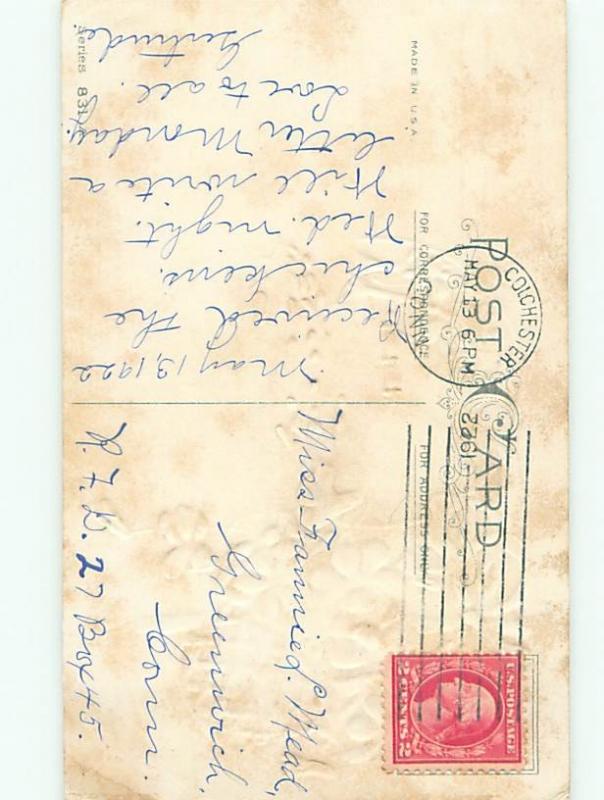 POST CARD
MADE IN U.S.A.
FOR CORRESPONDENCE
FOR ADDRESS ONLY
COLCHESTER
MAY 13 6 PM
1922
CONN.
U.S. POSTAGE
2 CENTS 2
May 13, 1922
Received the
chickens.
Wed. night.
Will write a
letter Monday.
Love to all.
Gertrude
Miss Fannie L. Mead,
Greenwich,
Conn.
R. F. D. 27 Box 45.
Series 831